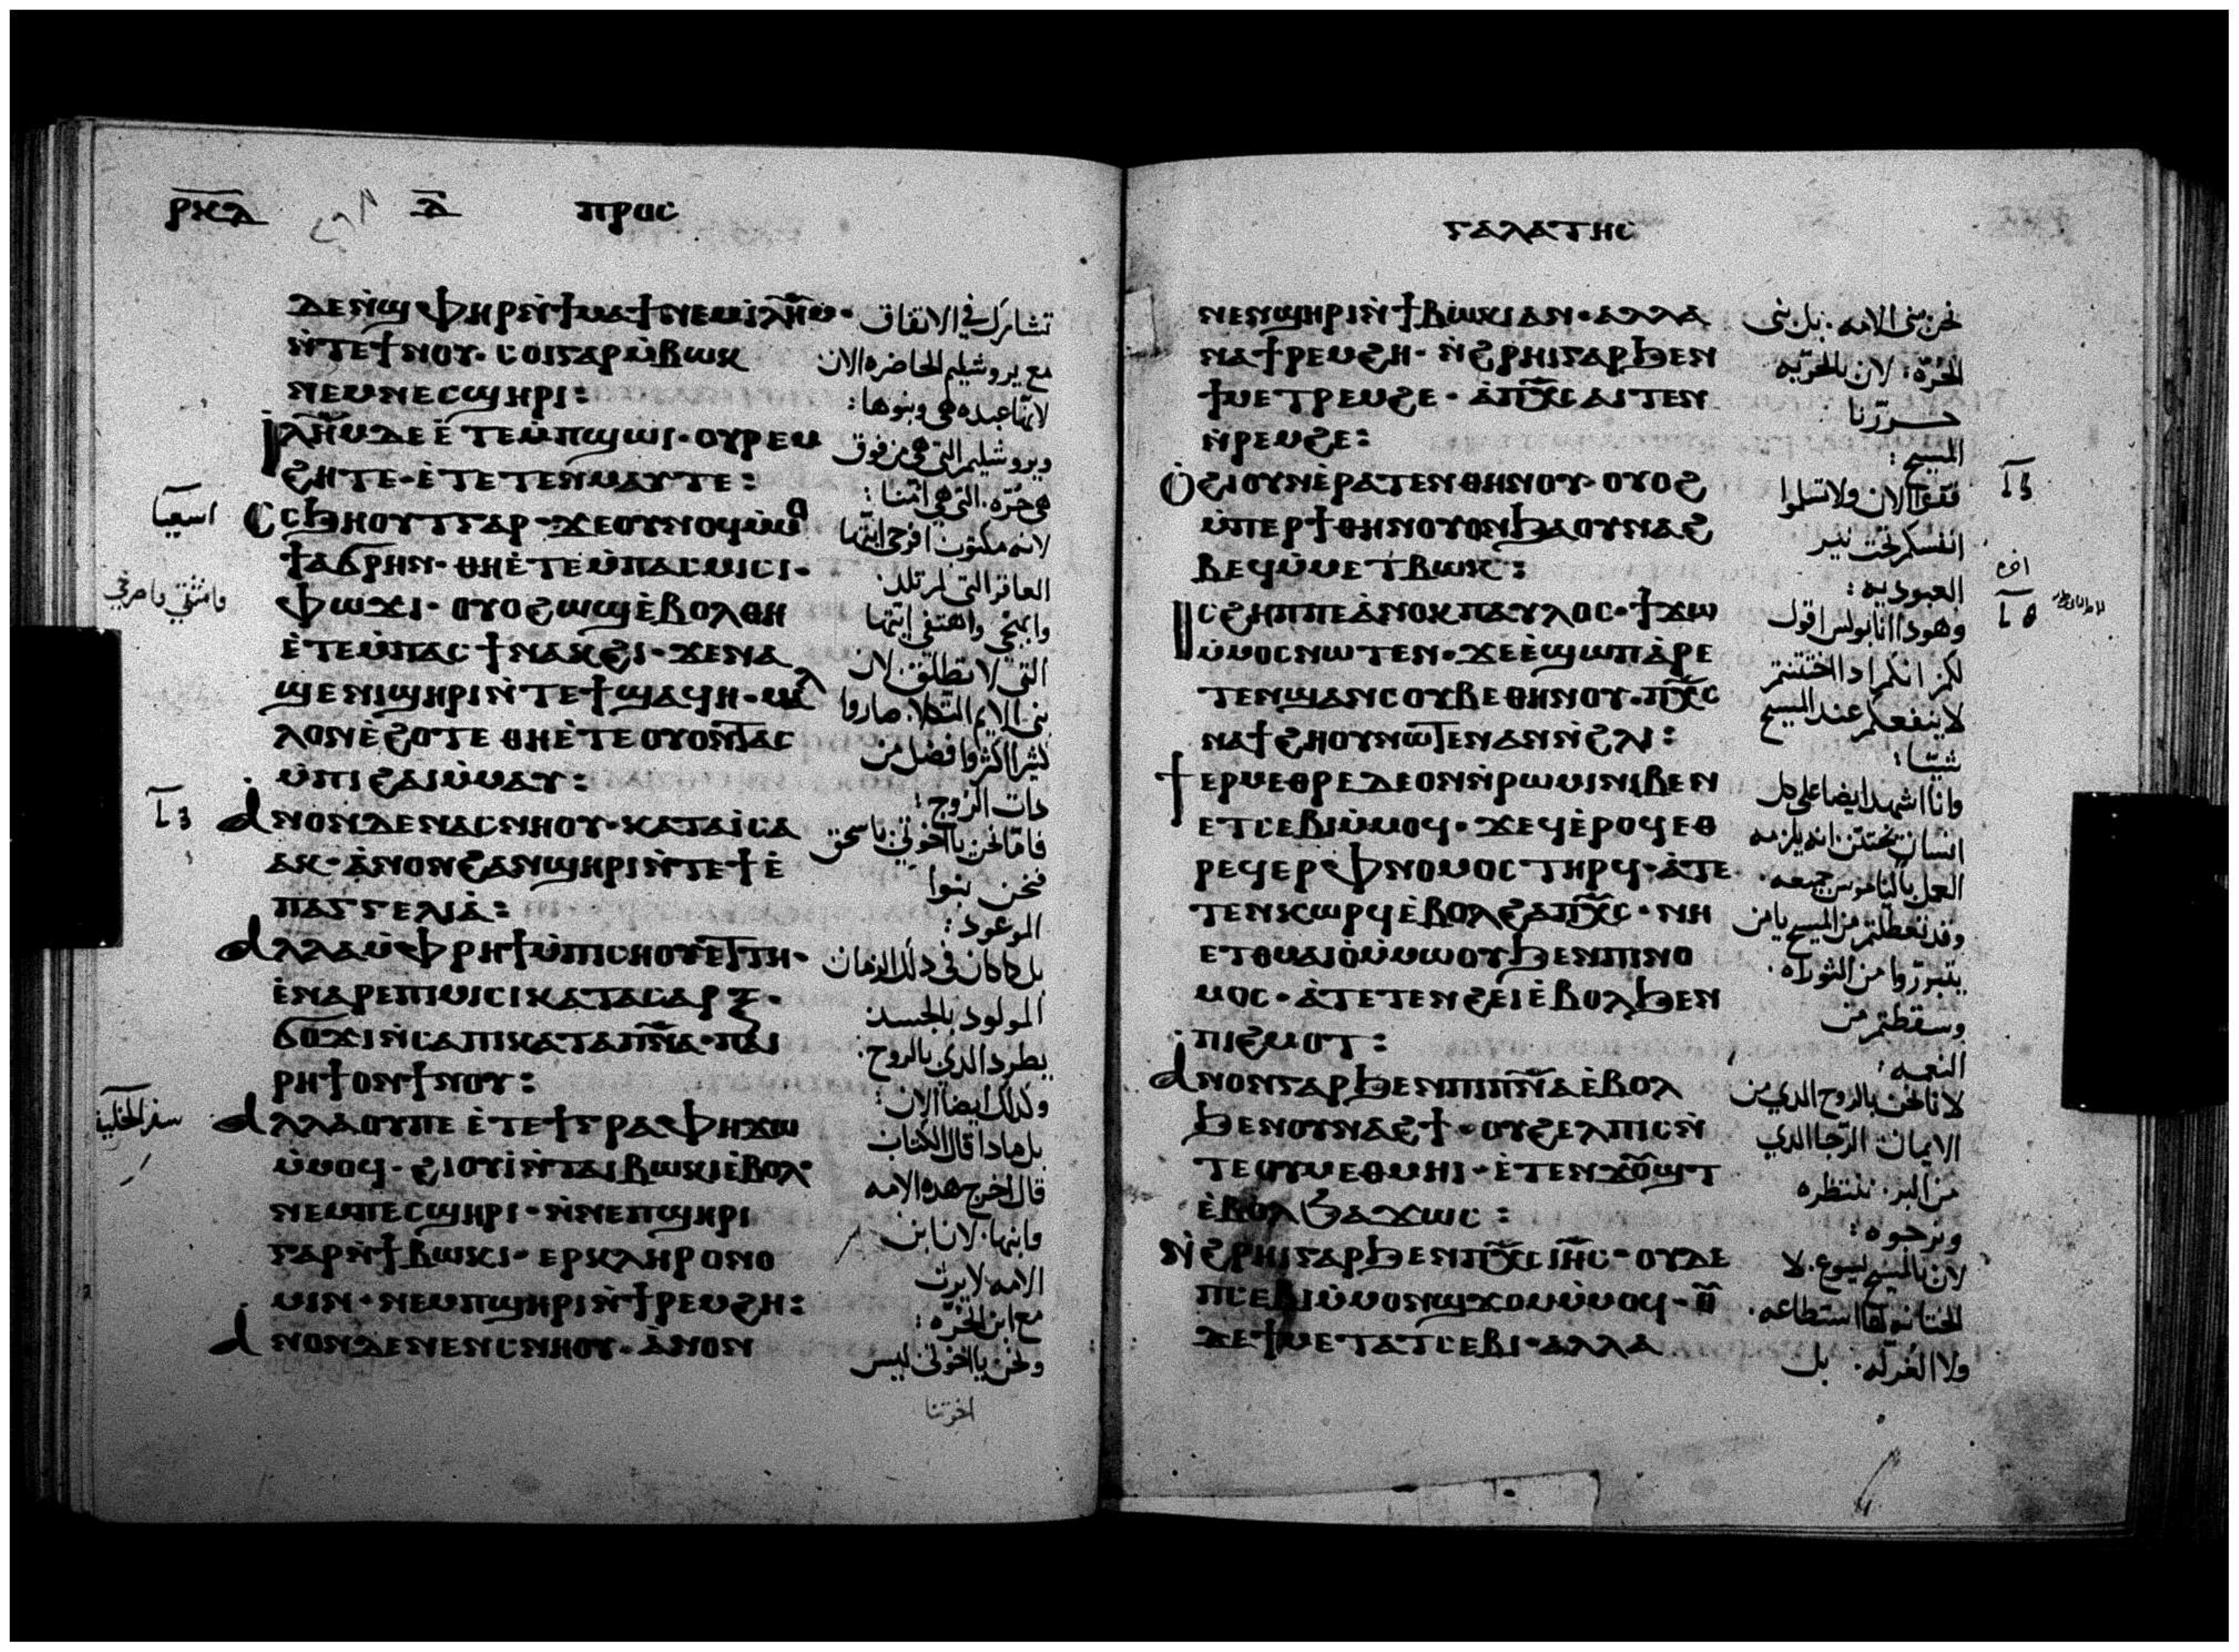 ⲣⲕⲇ ⲇ̄ ⲡⲣⲟⲥ
ⲇⲉⲛ̀ϣⲫⲏⲣⲛ̀ϯⲙⲁϯⲛⲉⲙⲓⲗ̅ⲏ̅ⲙ̅· تشارك في الاتفاق
ⲛ̀ⲧⲉϯⲛⲟⲩ· ⲥⲟⲓⲅⲁⲣⲙ̀ⲃⲱⲕ مع يروشليم الحاضره الان
ⲛⲉⲙⲛⲉⲥϣⲏⲣⲓ: لانها عبده هي وبنوها:
ⲓⲗ̅ⲏ̅ⲙ̅ⲇⲉⲉ̀ⲧⲉⲙ̀ⲡϣⲱⲓ· ⲟⲩⲣⲉⲙ ويروشليم التي هي من فوق
ϩⲏⲧⲉ· ⲉ̀ⲧⲉⲧⲉⲛⲙⲁⲩⲧⲉ: هي حرّه· التي هي امّنا:
اسعيا ⲥⲥϧⲏⲟⲩⲧⲅⲁⲣ· ϫⲉⲟⲩⲛⲟϥⲙ̀ⲙⲟ لانه مكتوب افرحي ايتها
ϯⲁϭⲣⲏⲛ· ⲑⲏⲉ̀ⲧⲉⲙ̀ⲡⲁⲥⲙⲓⲥⲓ· العاقر التي لم تلد·
ⲫⲱϫⲓ· ⲟⲩⲟϩⲱϣⲉ̀ⲃⲟⲗⲑⲏ واهتفي ايتها
ⲉ̀ⲧⲉⲙ̀ⲡⲁⲥϯⲛⲁⲕϩⲓ· ϫⲉⲛⲁ التي لا تطلق· لان
ϣⲉⲛⲓϣⲏⲣⲓⲛ̀ⲧⲉϯϣⲁϥⲏ· ⲙⲁⲗ صاروا
ⲗⲟⲛⲉ̀ϩⲟⲧⲉ ⲑⲏⲉ̀ⲧⲉⲟⲩⲟⲛⲧⲁⲥ كثيرا اكثر وافضل من
ⲙ̀ⲡⲓϩⲁⲓⲙ̀ⲙⲁⲩ: دات الزوج:
ⲁⲛⲟⲛⲇⲉⲛⲁⲥⲛⲏⲟⲩ· ⲕⲁⲧⲁⲓ̀ⲥⲁ فامّا نحن يا اخوتي باسحق
ⲁⲕ· ⲁ̀ⲛⲟⲛϩⲁⲛϣⲏⲣⲓⲛ̀ⲧⲉϯⲉ̀ فنحن بنوا
ⲡⲁⲅⲅⲉⲗⲓⲁ̀: الموعود:
ⲁⲗⲗⲁⲙ̀ⲫⲣⲏϯⲙ̀ⲡⲓⲥⲏⲟⲩⲉⲧⲧⲏ· بل كما كان في دلك الزمان
ⲉ̀ⲛⲁⲣⲉⲡⲓⲙⲓⲥⲓⲕⲁⲧⲁⲥⲁⲣⲝ· المولود بالجسد
ϭⲟϫⲓⲛ̀ⲥⲁⲡⲓⲕⲁⲧⲁⲡ̅ⲛ̅ⲁ̅· ⲡⲁⲓ يطرد الدي بالروح·
ⲣⲏϯⲟⲛϯⲛⲟⲩ: وكدلك ايضا الان:
سفر الخليقة ⲁⲗⲗⲁⲟⲩⲡⲉ ⲉ̀ⲧⲉϯⲅⲣⲁⲫⲏϫⲱ بل مادا قال الكتاب
ⲙ̀ⲙⲟϥ· ϩⲓⲟⲩⲓ̀ⲛ̀ⲧⲁⲓⲃⲱⲕⲓⲉ̀ⲃⲟⲗ قال اخرج هده الامه
ⲛⲉⲙⲡⲉⲥϣⲏⲣⲓ· ⲛ̀ⲛⲉⲡϣⲏⲣⲓ وابنها· لان ابن
ⲅⲁⲣⲛ̀ϯⲃⲱⲕⲓ· ⲉⲣⲕⲗⲏⲣⲟⲛⲟ الامه لا يرث
ⲙⲓⲛ· ⲛⲉⲙⲡϣⲏⲣⲓⲛ̀ϯⲣⲉⲙϩⲏ: مع ابن الحرّه:
ⲁⲛⲟⲛⲇⲉⲛⲉⲛⲥⲛⲏⲟⲩ· ⲁ̀ⲛⲟⲛ ونحن يا اخوتي ليس
ⲅⲁⲗⲁⲧⲏⲥ
ⲛⲉⲛϣⲏⲣⲓⲛ̀ϯⲃⲱⲕⲓⲁⲛ· ⲁⲗⲗⲁ نحن بني الامه· بل بني
ⲛⲁϯⲣⲉⲙϩⲏ· ⲛ̀ϩⲣⲏⲓⲅⲁⲣϧⲉⲛ الحُرّة: لان بالحريّه
ϯⲙⲉⲧⲣⲉⲙϩⲉ· ⲁ̀ⲡⲭ̅ⲥ̅ⲁⲓⲧⲉⲛ حرّرنا
ⲛ̀ⲣⲉⲙϩⲉ: المسيح:
ⲟ̀ϩⲓⲟⲩⲛⲉ̀ⲣⲁⲧⲉⲛⲑⲏⲛⲟⲩ· ⲟⲩⲟϩ فقفوا الان ولا
ⲙ̀ⲡⲉⲣϯⲑⲏⲛⲟⲩⲟⲛϧⲁⲟⲩⲛⲁϩ انفسكم تحت نير
ⲃⲉϥⲙ̀ⲙⲉⲧⲃⲱⲕ: العبوديه:
ⲓⲥϩⲏⲡⲡⲉⲁ̀ⲛⲟⲕⲡⲁⲩⲗⲟⲥ· ϯϫⲱ وهودا انا بولس اقول
ⲙ̀ⲙⲟⲥⲛⲱⲧⲉⲛ· ϫⲉⲉ̀ϣⲱⲡⲁ̀ⲣⲉ لكم انكم ادا اختتنتم
ⲧⲉⲛϣⲁⲛⲥⲟⲩⲃⲉⲑⲏⲛⲟⲩ· ⲡⲭ̅ⲥ̅ لا ينفعكم عند المسيح
ⲛⲁϯϩⲏⲟⲩⲛⲱⲧⲉⲛⲁⲛⲛ̀ϩⲗⲓ: شيئا:
ϯⲉⲣⲙⲉⲑⲣⲉⲇⲉⲟⲛⲛ̀ⲣⲱⲙⲓⲛⲓⲃⲉⲛ وانا اشهد ايضا على كل
ⲉⲧⲥⲉⲃⲓⲙ̀ⲙⲟϥ· ϫⲉϥⲉ̀ⲣⲟϥⲉⲑ انسان يختتن انه يلزمه
ⲣⲉϥⲉⲣⲫⲛⲟⲙⲟⲥⲧⲏⲣϥ· ⲁ̀ⲧⲉ العمل بالناموس جميعه·
ⲧⲉⲛⲕⲱⲣϥⲉ̀ⲃⲟⲗϩⲁⲡⲭ̅ⲥ̅· ⲛⲏ وقد تعطلتم من المسيح يا من
ⲉⲑⲙⲁⲓⲟ̀ⲙ̀ⲙⲱⲟⲩϧⲉⲛⲡⲓⲛⲟ يتبرّروا من التوراه·
ⲙⲟⲥ· ⲁ̀ⲧⲉⲧⲉⲛϩⲉⲓⲉ̀ⲃⲟⲗϧⲉⲛ وسقطتم من
ⲡⲓϩⲙⲟⲧ: النعمه:
ⲁⲛⲟⲛⲅⲁⲣϧⲉⲛⲡⲓⲡ̅ⲛ̅ⲁ̅ⲉ̀ⲃⲟⲗ لانا نحن بالروح الدي من
ϧⲉⲛⲟⲩⲛⲁϩϯ· ⲟⲩϩⲉⲗⲡⲓⲥⲛ̀ الايمان الرّجا الدي
ⲧⲉⲟⲩⲙⲉⲑⲙⲏⲓ· ⲉ̀ⲧⲉⲛϫⲟⲩϣⲧ من البر· ننتظره
ⲉ̀ⲃⲟⲗϧⲁϫⲱⲥ: ونرجوه:
ⲛ̀ϩⲣⲏⲓⲅⲁⲣϧⲉⲛⲡⲭ̅ⲥ̅ⲓⲏ̅ⲥ̅· ⲟⲩⲇⲉ لان بالمسيح يسوع· لا
ⲡⲥⲉⲃⲓⲙ̀ⲙⲟⲛϣϫⲟⲙⲙ̀ⲙⲟϥ· ⲟⲩ الختانه لها استطاعه·
ⲇⲉϯⲙⲉⲧⲁⲧⲥⲉⲃⲓ· ⲁⲗⲗⲁ ولا الغرله· بل